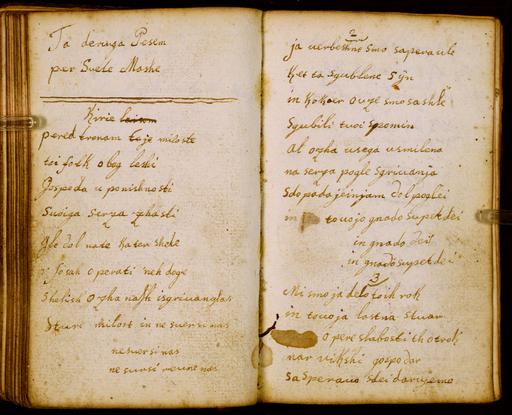 Ta deruga Pesem
per Svete Mashe
Kirie
pered tronam toje miloste
toi folk obog leshi
Gospoda u ponishnosti
Suoiga serza zhasti
Gle dol nate kater shele
Josah operati neh doge
shelish ozha nash isgriuanglas
Sture milost in ne suersi nas
ne suersi nas
ne sursi reune nas
2
ja smo saperavile
Ket ta sgublene
in Kokoer ouze smo sashle
Sgubili tvoi spomin
Al ozha usega usmilena
na serza pogle sgriuanja
Sdopadajeinjam dol poglei
in touojo gnado supet dei
in gnado dei
in gnado supet dei
3
Mi smo ja delo toih rok
in touoja lastna stuar
o pere slabosti th otrok
nar vikshi gospodar
sa speravo sdei darujemo